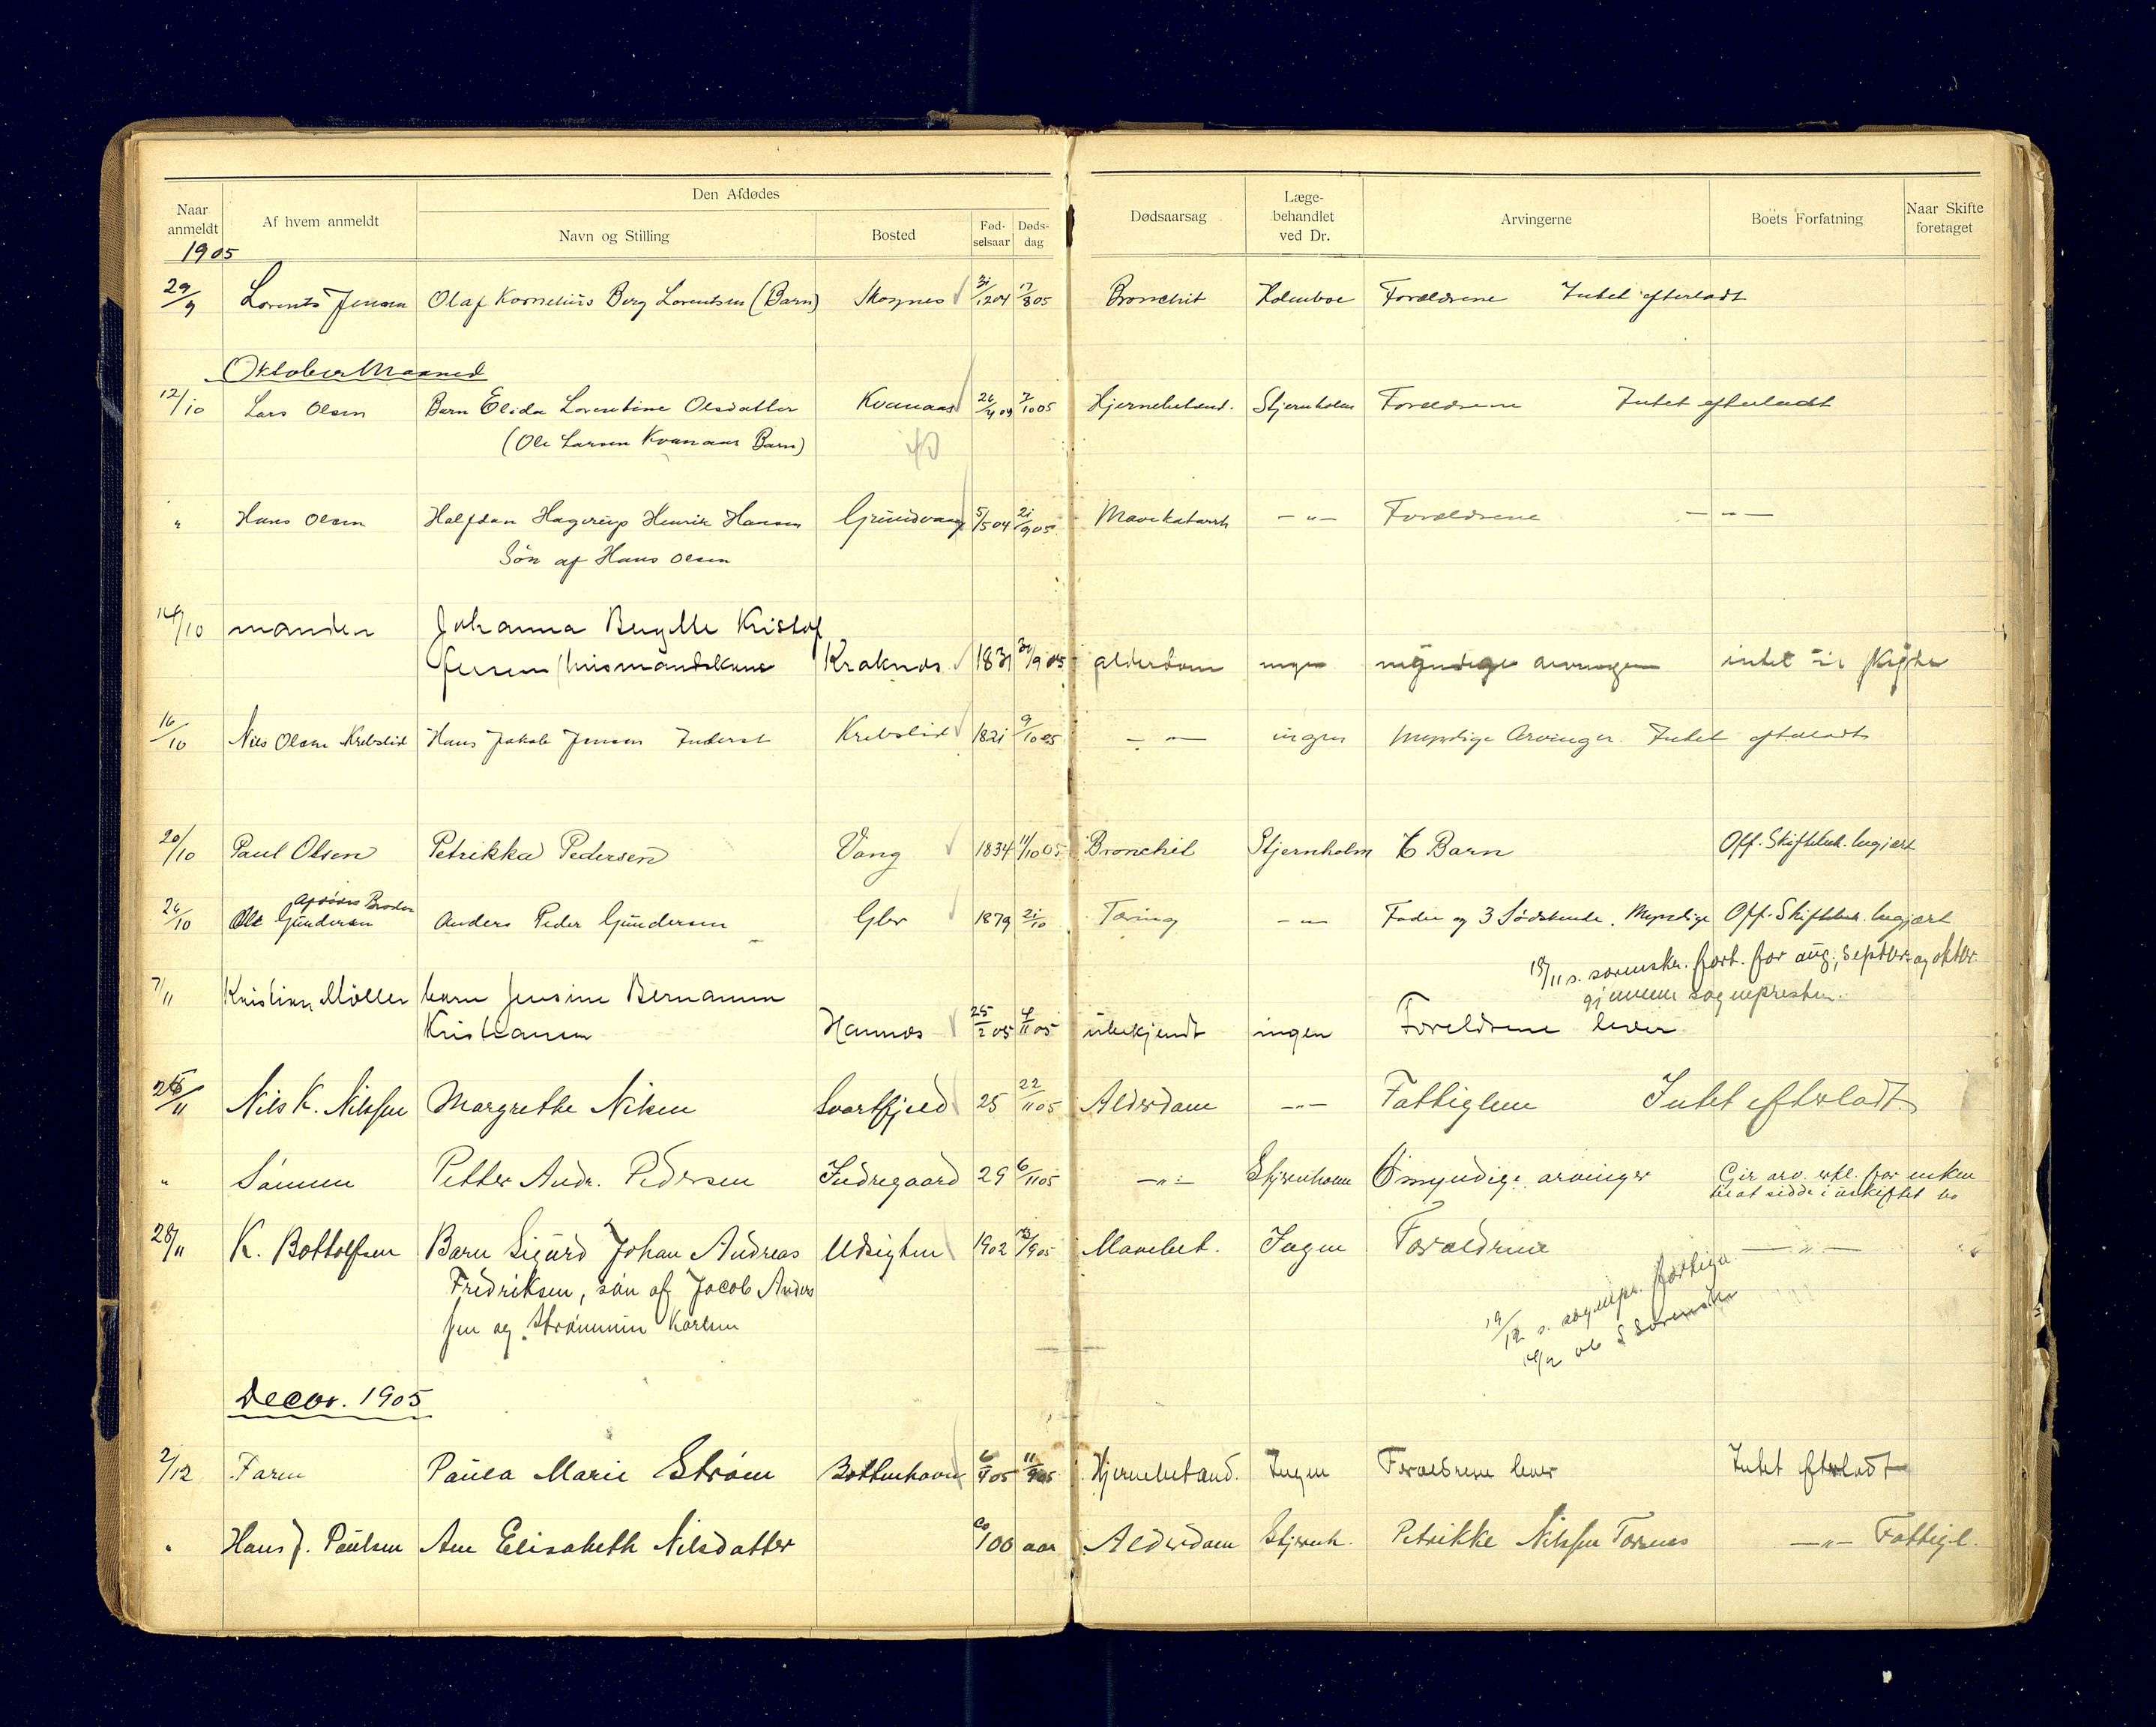 Naar anmeldt Af hvem anmeldt Den Afdødes Navn og Stilling Bosted Fødselsaar Dødsdag Dødsaarsag Lægebehandlet ved Dr. Arvingerne Boets Forfatning Naar Skifte foretaget
1905
29/9 Lorents Jensen Olaf Kornelius Berg Lorentsen (Barn) Skognes 31/12 04 17/8 05 Bronchit Holmboe Forældrene Intet efterladt
Oktober Maaned
12/10 Lars Olsen Barn Elida Lorentine Olsdatter Kvanaas 26/4 04 7/10 05 Hjernebetænd. Stjernholm Forældrene Intet efterladt
(Ole Larsen Kvanaas Barn)
" Hans Olsen Halfdan Hagerup Henrik Hansen Grundvaag 5/5 04 21/9 05 Mavekatarrh —"— Forældrene —"—
Søn af Hans Olsen
14/10 manden Johanna Bergitte Kristof
fersen husmandskone Kraknæs 1831 30/9 05 alderdom ingen myndige arvinger intet at skifte
16/10 Nils Olsen Krebslid Hans Jakob Jensen Inderst Krebslid 1821 9/10 05 —"— ingen Myndige Arvinger. Intet efterladt
20/10 Paul Olsen Petrikka Pedersen Vang 1834 11/10 05 Bronchit Stjernholm 6 Barn Off. Skiftebeh. begjært
afdødes Broder
26/10 Ole Gundersen Anders Peder Gundersen Gler 1879 21/10 Tæring —"— Fader og 3 Sødskende. Myndige Off. Skiftebeh. begjært
18/11 s. sorenskr. fort. for aug, septbr. og oktbr.
gjennem sognepresten.
7/11 Kristian Møller barn Jensine Bernamm
Kristiansen Hannæs 25/2 05 4/11 05 ubekjendt ingen Forældrene lever
25/11 Nils K. Nilssen Margrethe Nilsen Svartfjeld 25 22/11 05 Alderdom —"— Fattiglem Intet efterladt.
" Sønnen Petter Andr. Pedersen Indregaard 29 6/11 05 —"— Stjernholm 6 myndige arvinger Gir arv. erkl. for enken
til at sidde i uskiftet bo
28/11 K. Bottolfsen Barn Sigurd Johan Andreas Udsigten 1902 /9 05 Mavebet. Ingen Forældrene —"—
Fredriksen, søn af Jacob Anders
sen og Strømmin Karlsen
19/12 s. sognepr. fortegn.
Decbr. 1905
2/12 Faren Paula Marie Strøm Bottenhavn 6/4 05 11/9 05 Hjernebetænd. Ingen Forældrene lever Intet efterladt
" Hans J. Paulsen Ane Elisabeth Nilsdatter ca 100 aar Alderdom Stjernh. Petrikke Nilssen Tornes —"— Fattigl.